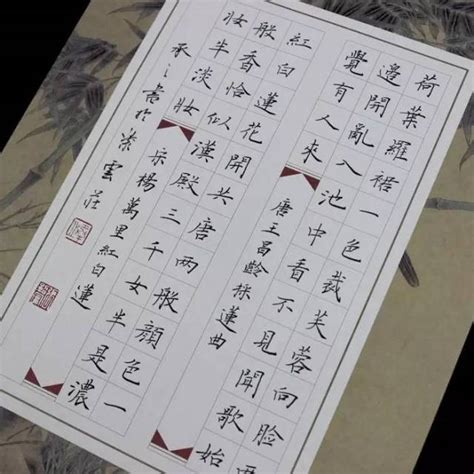 荷葉羅裙一色裁芙蓉向臉兩
邊開亂入池中看不見聞歌始
覺有人來 唐王昌齡採蓮曲
紅白蓮花開共唐兩般顏色一
般香恰似漢殿三千女半是濃
妝半淡妝 宋楊萬里紅白蓮
承之書於紫雲莊